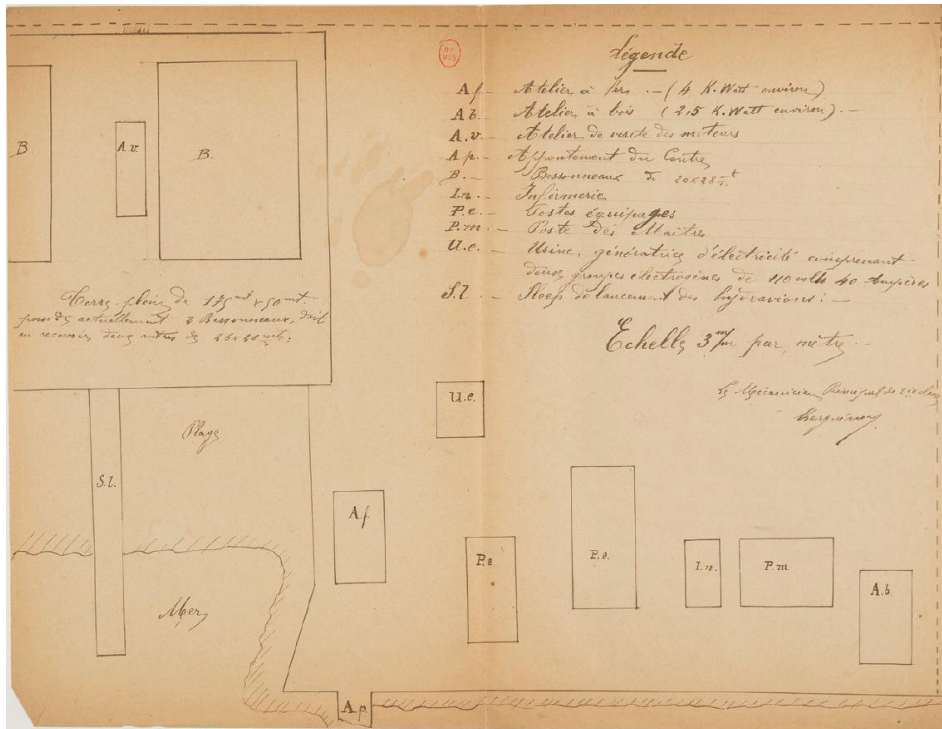 Légende
A f. - Atelier à fers. - (4 K. Watt environ)
A b. - Atelier à bois (2,5 K. Watt environ). -
A.v. - Atelier de visite des moteurs
A p. - Appontement du Centre
B. - Bessonneaux de 20x28 mt
I.n. - Infirmerie
P.e. - Postes équipages
P.m. - Poste des Maîtres
U.e. - Usine, génératrice d'électricité comprenant
deux groupes électrogènes de 110 volts 40 Ampères
S.l. - Sleep de lancement des hydravions : -
Echelle 3 m/m par mètre -
Le Mécanicien Principal de 2e classe
B
A.v.
B.
Terre plein de 175 mt x 50 mt.
possède actuellement 2 Bessonneaux, doit
en recevoir deux autres de
U.e.
Plage
S.l.
A.f
P.e
P.e.
I.n.
P.m
A.b
Mer
A.p.